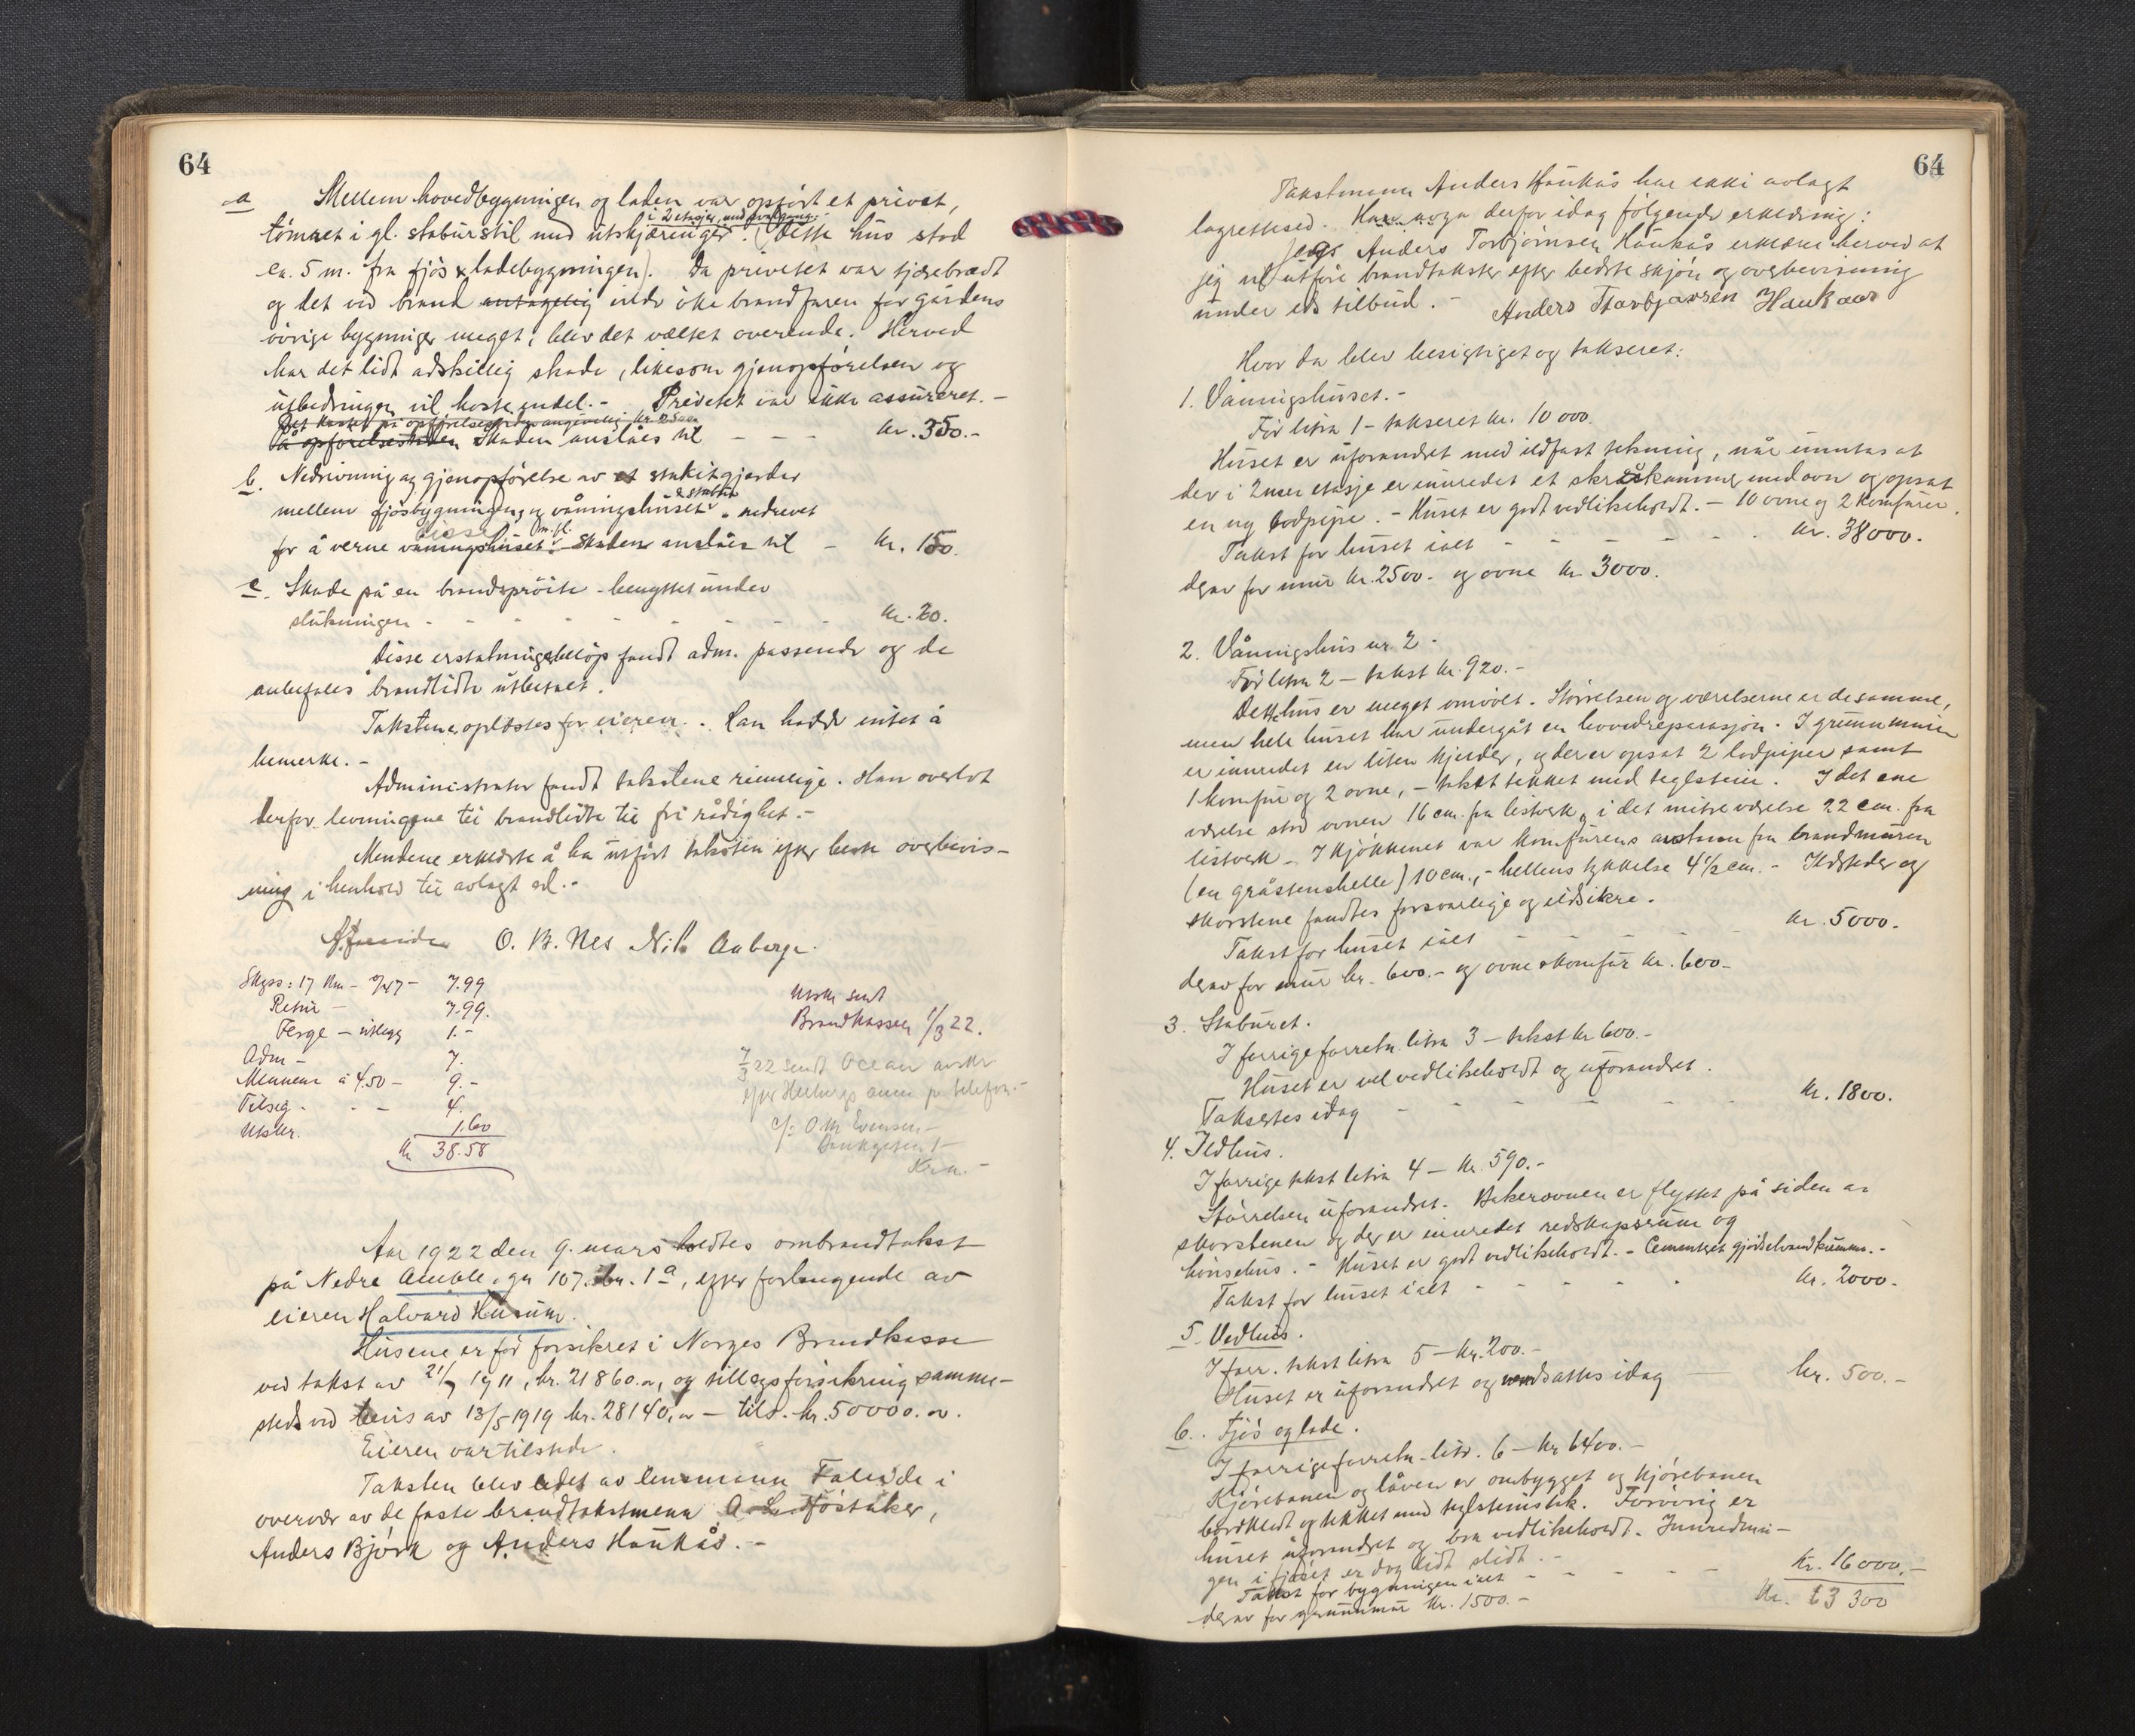 64
a Mellem hovedbygningen og laden var opført et privet,
i 2 etasjer, med svalgang.
tømret i gl. stabursstil med utskjæringer. (Dette hus stod
ca. 5 m. fra fjøs & ladebygningen). Da privetet var tjærebrædt
og det ved brand antagelig vilde øke brandfaren for gårdens
øvrige bygninger meget, blev det væltet overende. Herved
har det lidt adskillig skade, likesom gjenopførelsen og
utbedringen vil koste endel. - Privetet var ikke assureret. -
Det kostet på opførelsestiden angivelig kr. 2500
På opførelsestiden Skaden anslåes til - - - kr. 350.-
b. Nedrivning og gjenopførelse av et stakitgjerder
mellem fjøsbygningen og våningshuset & stabur nedrevet
for å verne våningshuset m. fl. Skaden anslåes til - kr. 150.
c. Skade på en brandsprøite - benyttet under
slukningen - - - - - - - - kr. 20.
Disse erstatningsbeløp fandt adm. passende og de
anbefales brandlidte utbetalt.
Takstene oplæstes for eieren. Han hadde intet å
bemerke. -
Administrator fandt takstene rimelige. Han overlot
derfor levningene til brandlidte til fri rådighet. -
Mændene erklærte å ha utført taksten efter beste overbevis-
ning i henhold til avlagt ed. -
O. B. Nes Nils Amberge.
Skyss: 17 km - 0/47 - 7.99
Retur - 7.99.
Ferge - utlegg 1.-
Adm - 7.
Mennene à 4.50 - 9.-
Tilsig. - - 4.
Utskr. 1.60
Kr 38.58
Utskr. sendt
Brandkassen 1/3 22.
7/3 22 sendt Ocean avskr
efter Helbergs anm. pr. telefon. -
c/o O. M. Evensen -
Bankgaten 1 -
Krn. -
Aar 1922 den 9. mars holdtes ombrandtakst
på Nedre Amble, gr 107. br. 1a, efter forlangende av
eieren Halvard Husum.
Husene er før forsikret i Norges Brandkasse
ved takst av 21/7 1911, kr. 21860.00, og tillægsforsikring samme-
steds ved bevis av 13/5 1919 kr. 28140,00 - tils. kr. 50000.00.
Eieren var tilstede.
Taksten blev ledet av lensmann Faleide i
overvær av de faste brandtakstmenn
Anders Bjørk og Anders Haukås. -
64
Takstmann Anders Haukås har ikke avlagt
lagrettesed. Han avga derfor idag følgende erklæring:
Jeg Anders Torbjørnsen Haukås erklærer herved at
jeg vil utføre brandtakster efter bedste skjøn og overbevisning
under eds tilbud. - Anders Thorbjørnsen Haukaas
Hvor da blev besigtiget og takseret:
1. Våningshuset. -
Før litra 1 - takseret kr. 10 000.
Huset er uforandret med ildfast tekning, når unntas at
der i 2nen etasje er innredet et skråkammer med ovn og opsat
en ny lodpipe. - Huset er godt vedlikeholdt. - 10 ovne og 2 komfurer.
Takst for huset ialt - - - - - - kr. 38000.
derav for mur kr. 2500.- og ovne kr 3000.
2. Våningshus nr. 2 -
Før litra 2 - takst kr. 920. -
Dette hus er meget omvølt. Størrelsen og værelserne er desamme,
men hele huset har undergåt en hovedreparasjon. I grunnmuren
er innredet en liten kjelder, og der er opsat 2 lodpiper samt
1 komfur og 2 ovne, - taket tekket med teglstein. I det ene
værelse stod ovnen 16 cm. fra listverk, i det mitre værelse 22 cm. fra
listverk - I kjøkkenet var komfurens avstann fra brandmuren
(en gråstenshelle) 10 cm., - hellens tykkelse 4 1/2 cm. - Ildsteder og
skorstene fandtes forsvarlige og ildsikre.
Takst for huset ialt - - - - - kr. 5000.
derav for mur kr. 600.- og ovne & komfur kr. 600-
3. Staburet.
I forrige forretn. litra 3 - takst kr 600.-
Huset er vel vedlikeholdt og uforandret.
Takseres idag - - - - - - kr. 1800.
4. Ildhus.
I forrige takst litra 4 - kr. 590.-
Størrelsen uforandret. Bakerovnen er flyttet på siden av
skorstenen og der er innredet redskapsrum og
hønsehus. - Huset er godt vedlikeholdt. - Cementert gjødselvandkumme. -
Takst for huset ialt - - - - - kr. 2000.
5. Vedhus.
I forr. takst litra 5 - kr. 200. -
Huset er uforandret og verdsættes idag - kr. 500.-
6. Fjøs og lade.
I forrige forretn. litr. 6 - kr 6400. -
Kjørebanen og låven er ombygget og kjørebanen
bordkledt og tekket med teglsteinstak. Forøvrig er
huset uforandret og bra vedlikeholdt. Innrednin-
gen i fjøset er dog lidt slidt. -
Takst for bygningen ialt - - - - - Kr. 16000.-
derav for grunnmur Kr. 1500. -
Kr. 63 300